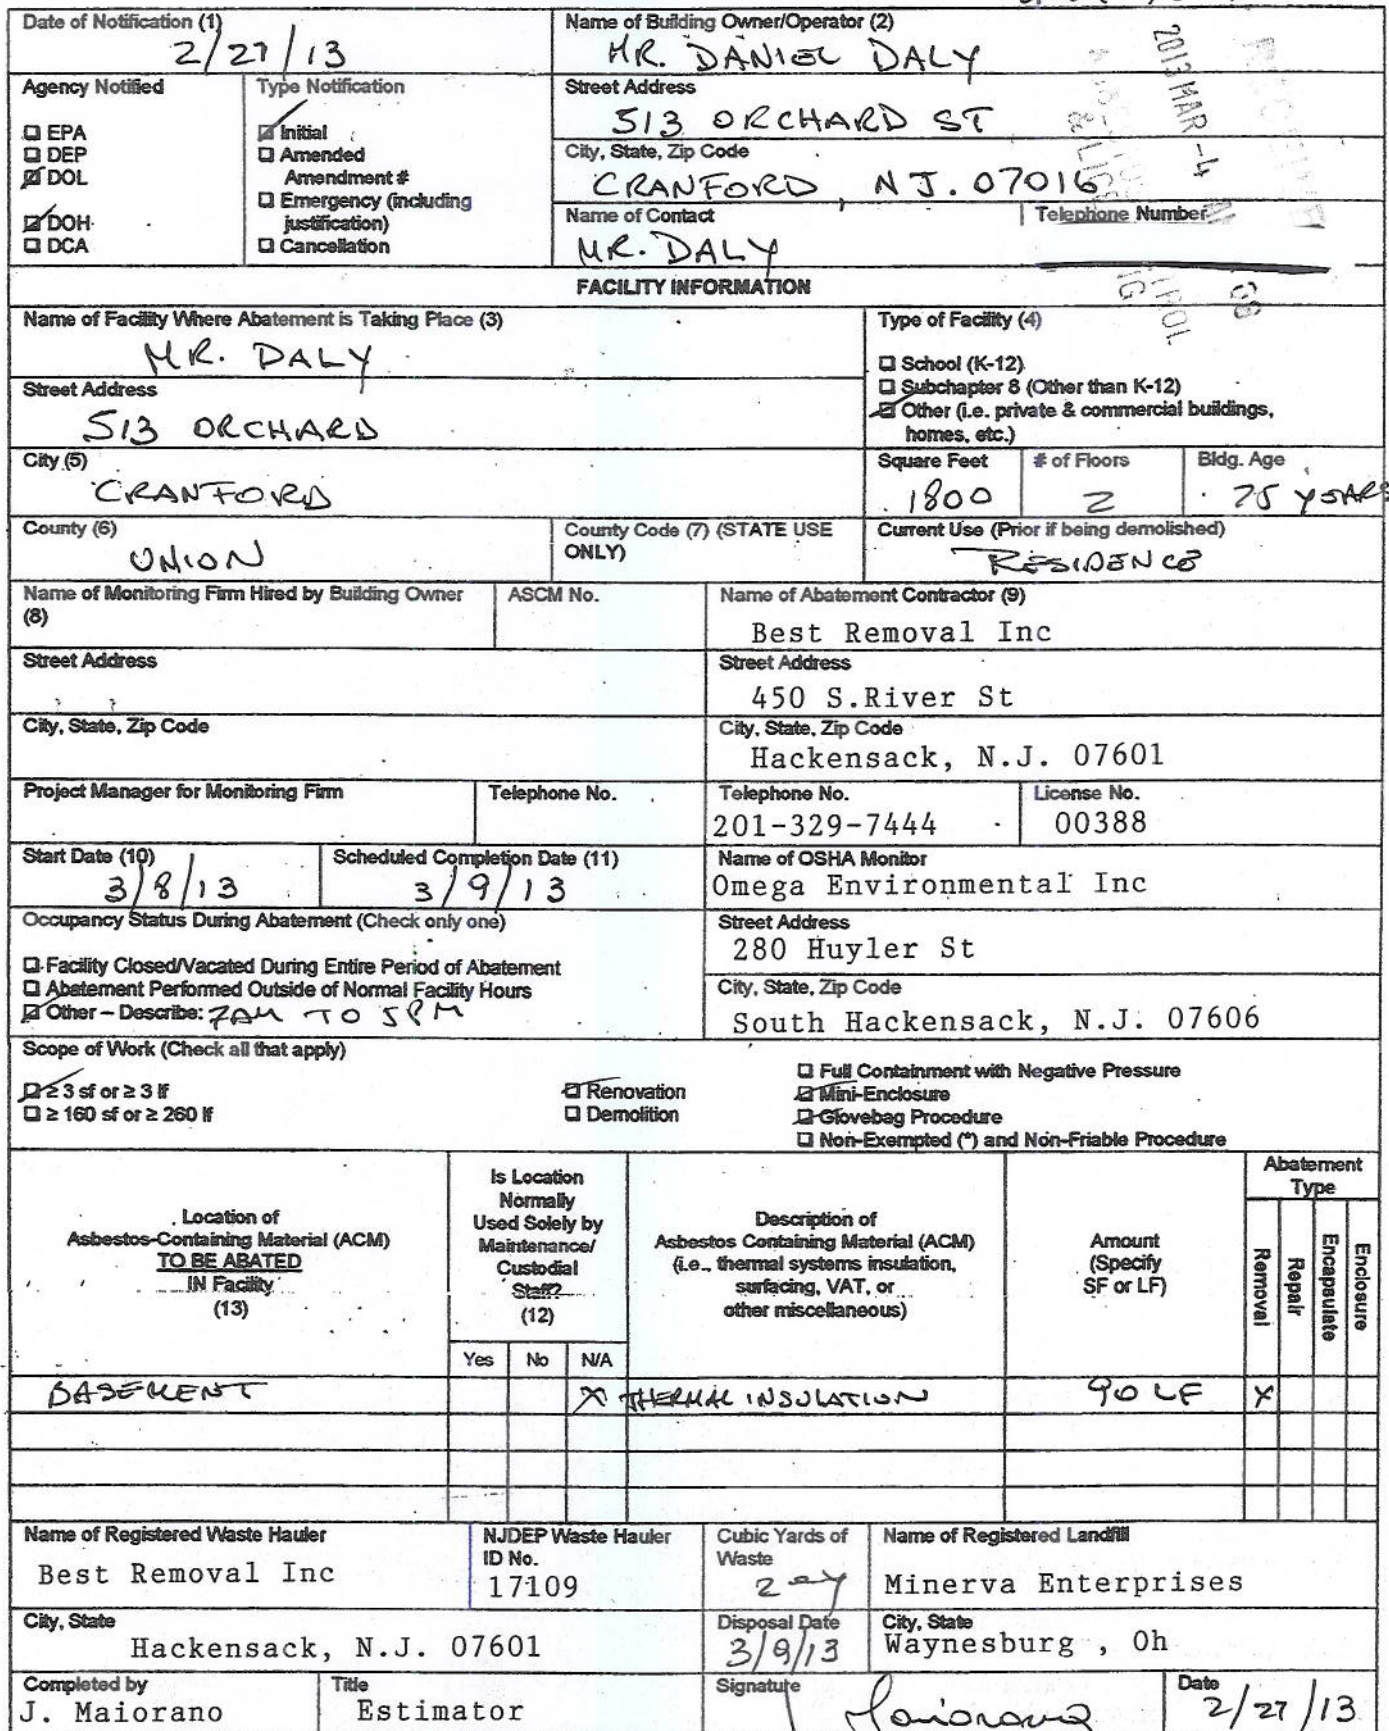 Date of Notification (1)
2/27/13
Name of Building Owner/Operator (2)
MR. DANIEL DALY
Agency Notified
EPA
DEP
DOL
DOH
DCA
Type Notification
Initial
Amended
Amendment #
Emergency (including
justification)
Cancellation
Street Address
513 ORCHARD ST
City, State, Zip Code
CRANFORD, NJ. 07016
Name of Contact
MR. DALY
Telephone Number
2013 MAR -4
FACILITY INFORMATION
Name of Facility Where Abatement is Taking Place (3)
MR. DALY
Type of Facility (4)
School (K-12)
Subchapter 8 (Other than K-12)
Other (i.e. private & commercial buildings,
homes, etc.)
Street Address
513 ORCHARD
City (5)
CRANFORD
Square Feet
1800
# of Floors
2
Bldg. Age
75 YEARS
County (6)
UNION
County Code (7) (STATE USE
ONLY)
Current Use (Prior if being demolished)
RESIDENCE
Name of Monitoring Firm Hired by Building Owner
(8)
ASCM No.
Name of Abatement Contractor (9)
Best Removal Inc
Street Address
Street Address
450 S.River St
City, State, Zip Code
City, State, Zip Code
Hackensack, N.J. 07601
Project Manager for Monitoring Firm
Telephone No.
Telephone No.
201-329-7444
License No.
00388
Start Date (10)
3/8/13
Scheduled Completion Date (11)
3/9/13
Name of OSHA Monitor
Omega Environmental Inc
Occupancy Status During Abatement (Check only one)
Facility Closed/Vacated During Entire Period of Abatement
Abatement Performed Outside of Normal Facility Hours
Other – Describe: 7AM TO 5PM
Street Address
280 Huyler St
City, State, Zip Code
South Hackensack, N.J. 07606
Scope of Work (Check all that apply)
≥ 3 sf or ≥ 3 lf
≥ 160 sf or ≥ 260 lf
Renovation
Demolition
Full Containment with Negative Pressure
Mini-Enclosure
Glovebag Procedure
Non-Exempted (*) and Non-Friable Procedure
Location of
Asbestos-Containing Material (ACM)
TO BE ABATED
IN Facility
(13)
Is Location
Normally
Used Solely by
Maintenance/
Custodial
Staff?
(12)
Yes No N/A
Description of
Asbestos Containing Material (ACM)
(i.e., thermal systems insulation,
surfacing, VAT, or
other miscellaneous)
Amount
(Specify
SF or LF)
Abatement
Type
Removal
Repair
Encapsulate
Enclosure
BASEMENT X THERMAL INSULATION 90 LF X
Name of Registered Waste Hauler
Best Removal Inc
NJDEP Waste Hauler
ID No.
17109
Cubic Yards of
Waste
2 cy
Name of Registered Landfill
Minerva Enterprises
City, State
Hackensack, N.J. 07601
Disposal Date
3/9/13
City, State
Waynesburg , Oh
Completed by
J. Maiorano
Title
Estimator
Signature
Maiorano
Date
2/27/13